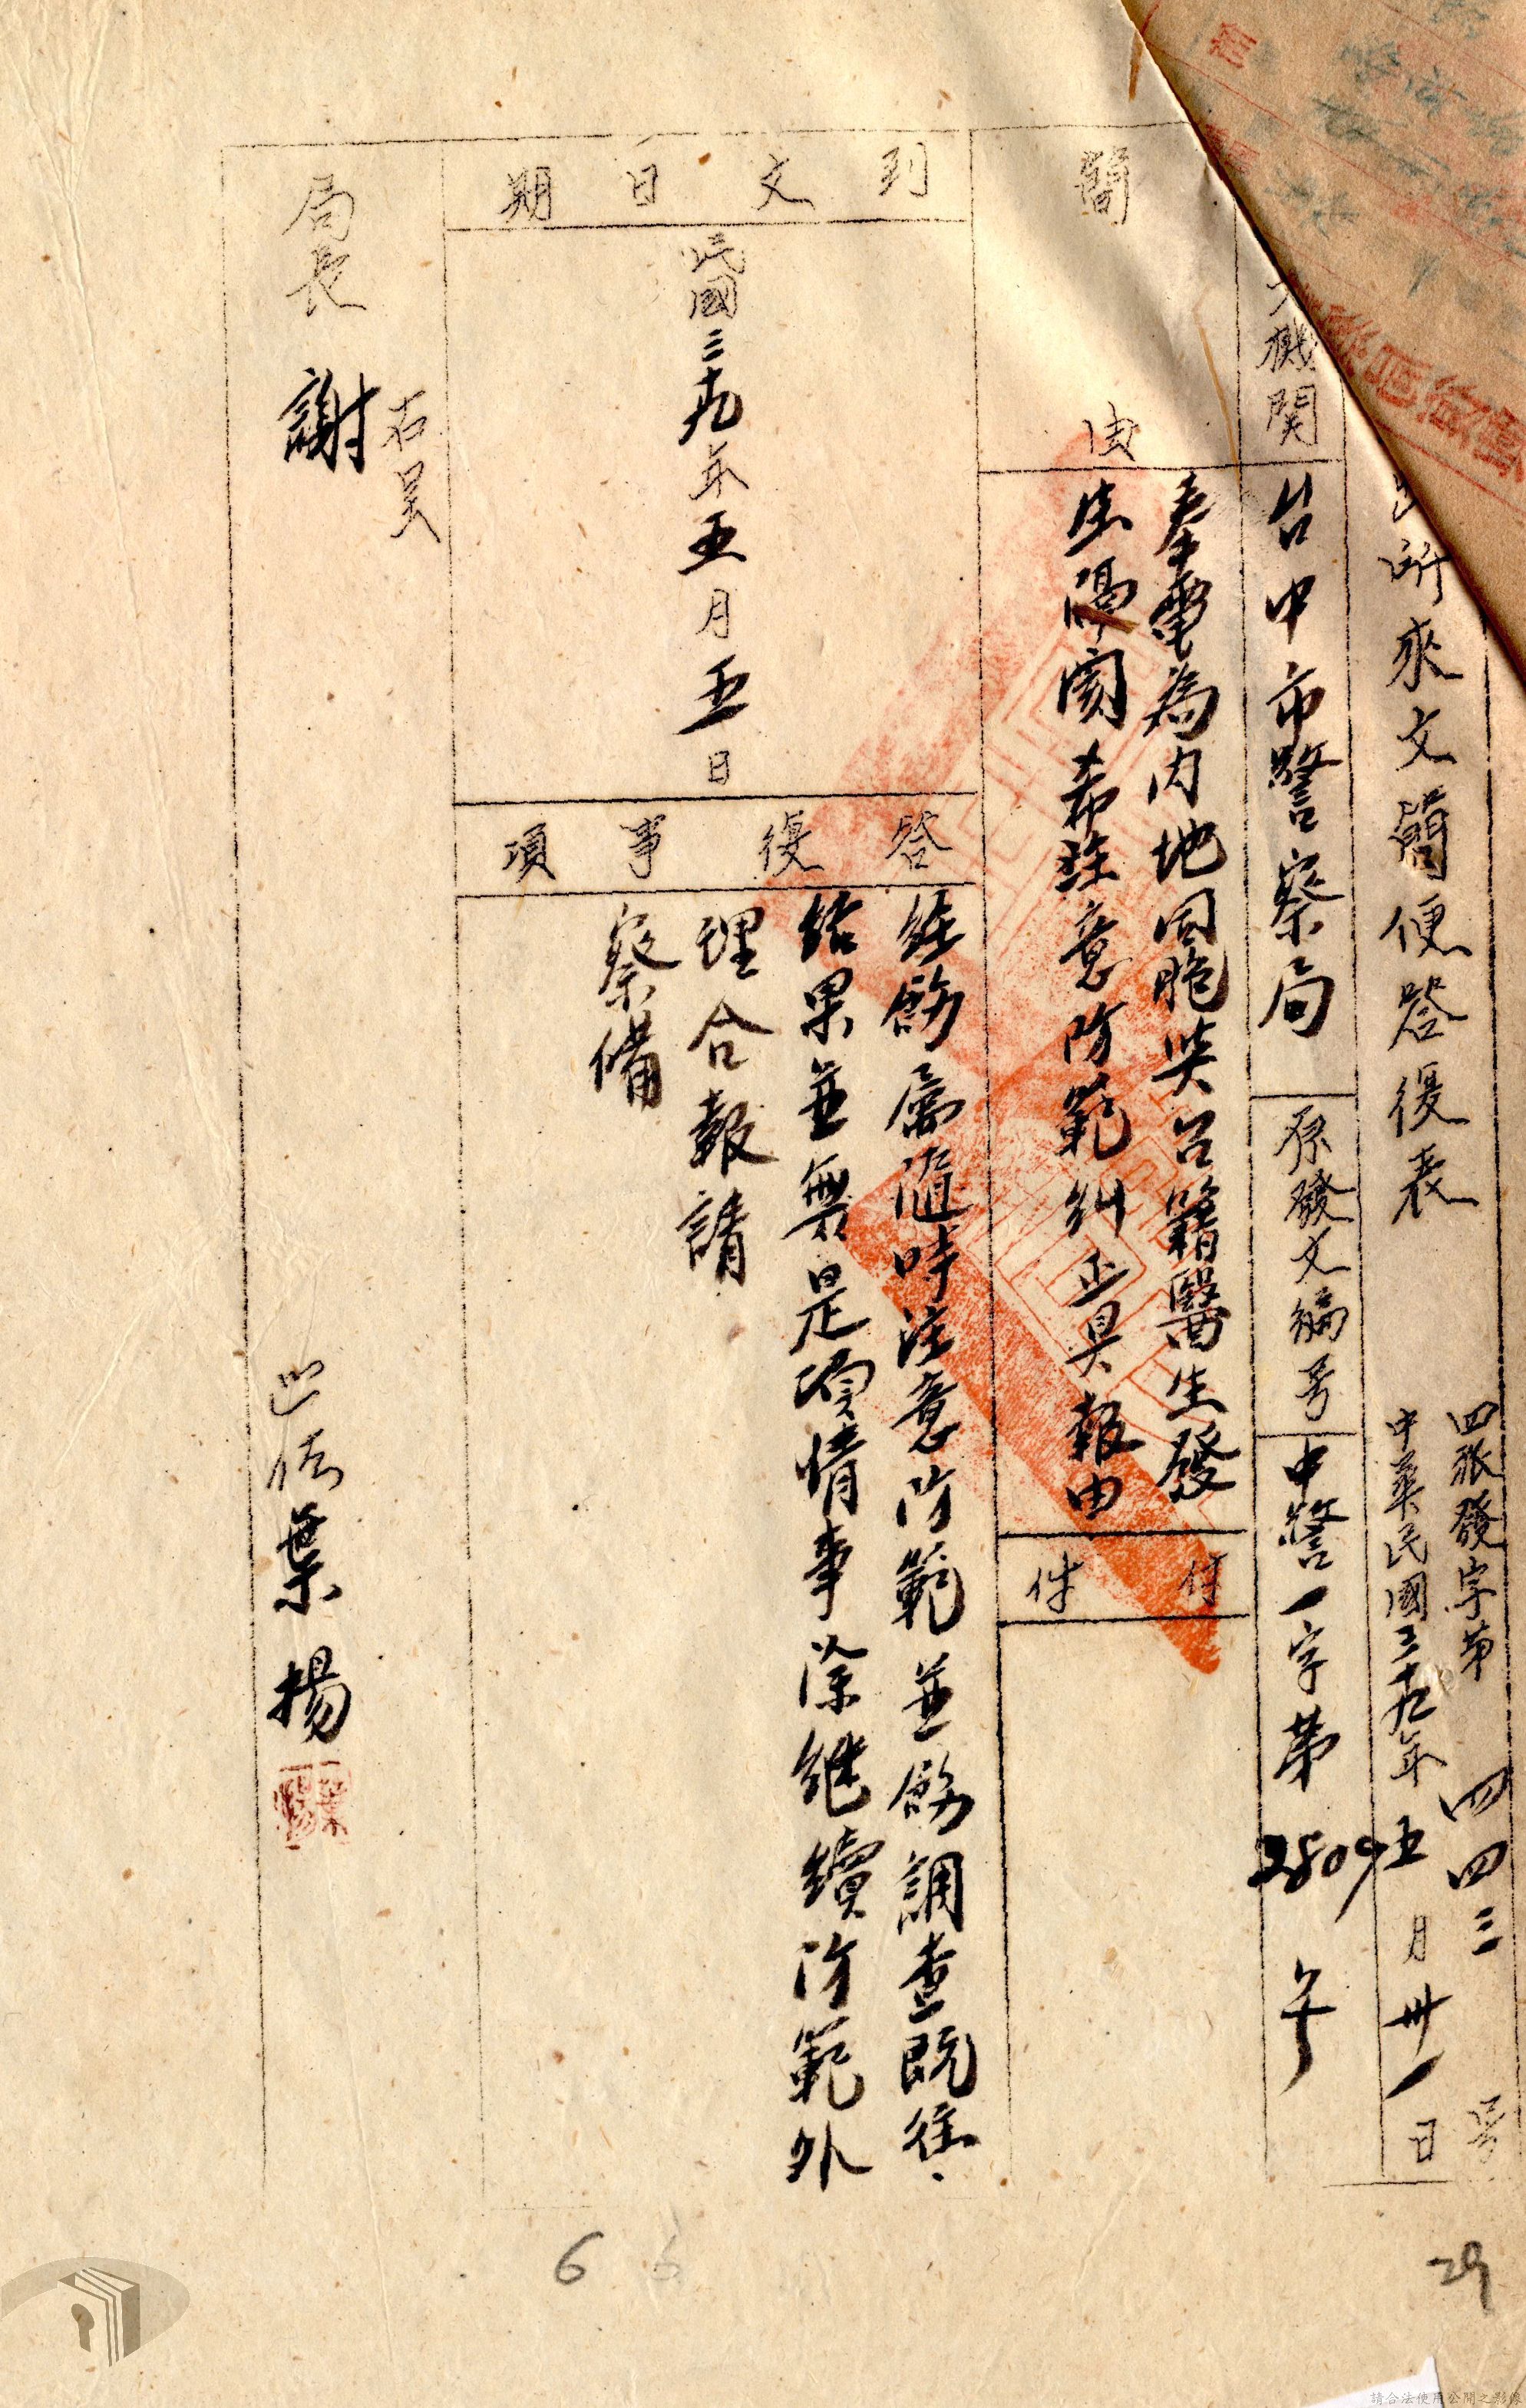 所來文簡便答復表
四張發字第四四三号
中華民國三十九年五月卅一日
文機関
台中市警察局
原發文編号
中警一字第2809号
簡由
奉電為内地同胞與台籍醫生發
生隔閡希注意防範糾正具報由
付件
到文日期
民國三十九年五月五日
答復事項
經飭屬隨時注意防範並飭調查既往、
結果並無是項情事除継續防範外
理合報請
察備
右呈
局長 謝
巡佐 葉揚
6
29
請合法使用公開之影像